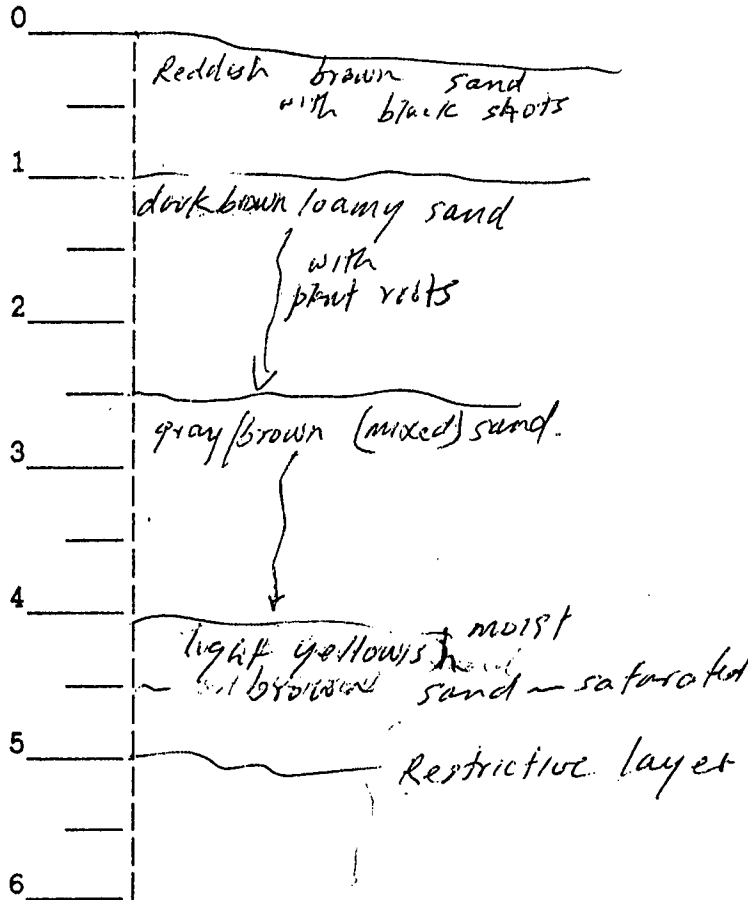 0
Reddish brown sand
with black shots
1
dark brown loamy sand
with
plant roots
2
gray/brown (mixed) sand.
3
4
moist
light yellowish
brown sand - saturated
5
Restrictive layer
6